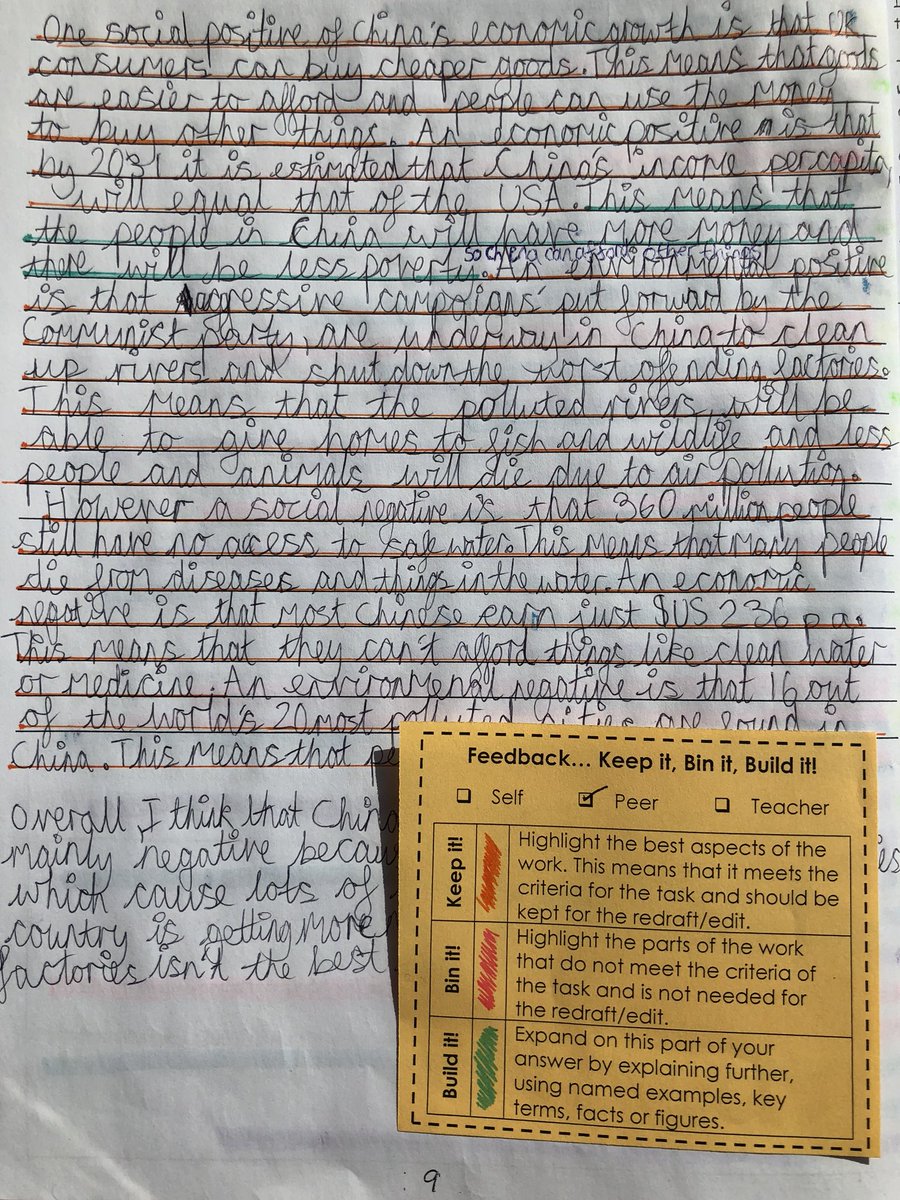 One social positive of China's economic growth is that
consumers can buy cheaper goods. This means that goods
are easier to afford and people can use the money
to buy other things. An economic positive is that
by 2031 it is estimated that China's income per capita,
will equal that of the USA. This means that
the people in China will have more money and
so China can afford other things
there will be less poverty. An environmental positive
is that aggressive campaigns put forward by the
Communist Party, are underway in China to clean
up rivers and shut down the worst offending factories.
This means that the polluted rivers will be
able to give homes to fish and wildlife and less
people and animals will die due to air pollution.
However a social negative is that 360 million people
still have no access to safe water. This means that many people
die from diseases and things in the water. An economic
negative is that most Chinese earn just $US 236 p.a.
This means that they can't afford things like clean water
or medicine. An environmenal negative is that 16 out
of the world's 20 most polluted cities are found in
China. This means that pe
Overall I think that Chin
mainly negative becaus es
which cause lots of
country is getting more
factories isn't the best
Feedback... Keep it, Bin it, Build it!
Self Peer Teacher
Keep it!
Highlight the best aspects of the
work. This means that it meets the
criteria for the task and should be
kept for the redraft/edit.
Bin it!
Highlight the parts of the work
that do not meet the criteria of
the task and is not needed for
the redraft/edit.
Build it!
Expand on this part of your
answer by explaining further,
using named examples, key
terms, facts or figures.
9